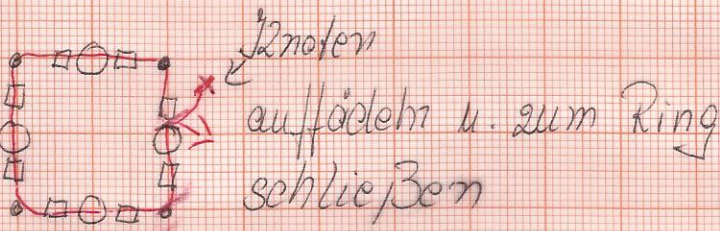 Knoten
auffädeln u. zum Ring
schließen